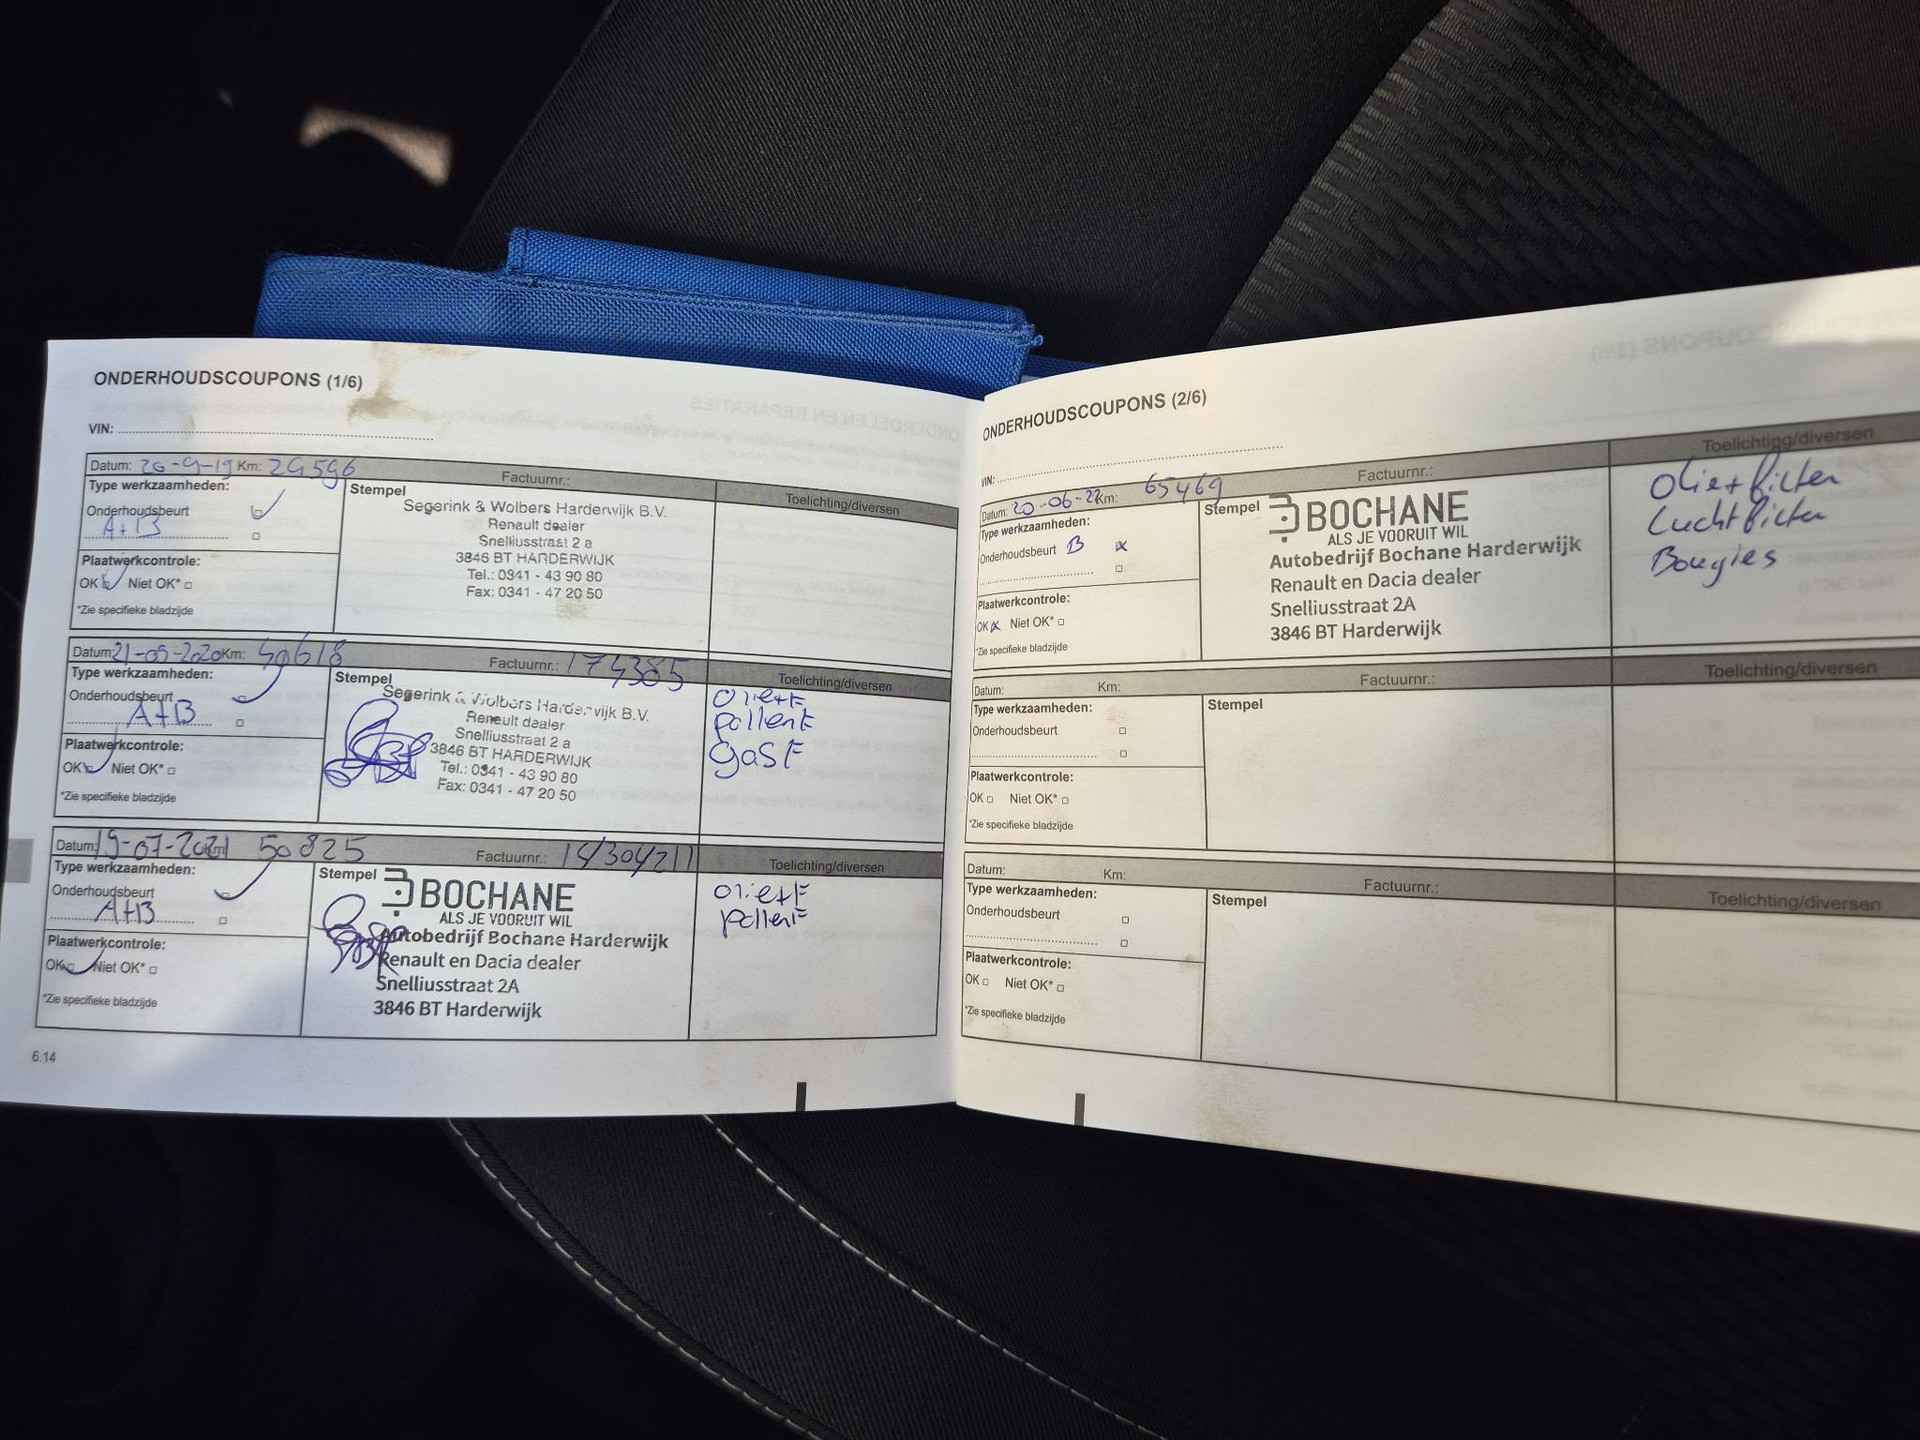 ONDERHOUDSCOUPONS (1/6)
VIN:
Datum: 20-9-19 Km: 29596 Factuurnr.:
Type werkzaamheden:
Onderhoudsbeurt
A+B
Plaatwerkcontrole:
OK Niet OK*
*Zie specifieke bladzijde
Stempel
Segerink & Wolbers Harderwijk B.V.
Renault dealer
Snelliusstraat 2 a
3846 BT HARDERWIJK
Tel.: 0341 - 43 90 80
Fax: 0341 - 47 20 50
Toelichting/diversen
Datum: 21-09-2020 Km: Factuurnr.: 174385
Type werkzaamheden:
Onderhoudsbeurt
A+B
Plaatwerkcontrole:
OK Niet OK*
*Zie specifieke bladzijde
Stempel
Segerink & Wolbers Harderwijk B.V.
Renault dealer
Snelliusstraat 2 a
3846 BT HARDERWIJK
Tel.: 0341 - 43 90 80
Fax: 0341 - 47 20 50
Toelichting/diversen
olie+F
pollenF
gasF
Datum: 19-07-2021 Km: 50825 Factuurnr.: 14/304211
Type werkzaamheden:
Onderhoudsbeurt
A+B
Plaatwerkcontrole:
OK Niet OK*
*Zie specifieke bladzijde
Stempel
BOCHANE
ALS JE VOORUIT WIL
Autobedrijf Bochane Harderwijk
Renault en Dacia dealer
Snelliusstraat 2A
3846 BT Harderwijk
Toelichting/diversen
olie+F
pollenF
6.14
ONDERHOUDSCOUPONS (2/6)
VIN:
Datum: 20-06-22 Km: 65469 Factuurnr.:
Type werkzaamheden:
Onderhoudsbeurt B
Plaatwerkcontrole:
OK Niet OK*
*Zie specifieke bladzijde
Stempel
BOCHANE
ALS JE VOORUIT WIL
Autobedrijf Bochane Harderwijk
Renault en Dacia dealer
Snelliusstraat 2A
3846 BT Harderwijk
Toelichting/diversen
Olie+filter
Luchtfilter
Bougies
Datum: Km: Factuurnr.:
Type werkzaamheden:
Onderhoudsbeurt
Plaatwerkcontrole:
OK Niet OK*
*Zie specifieke bladzijde
Stempel
Toelichting/diversen
Datum: Km: Factuurnr.:
Type werkzaamheden:
Onderhoudsbeurt
Plaatwerkcontrole:
OK Niet OK*
*Zie specifieke bladzijde
Stempel
Toelichting/diversen